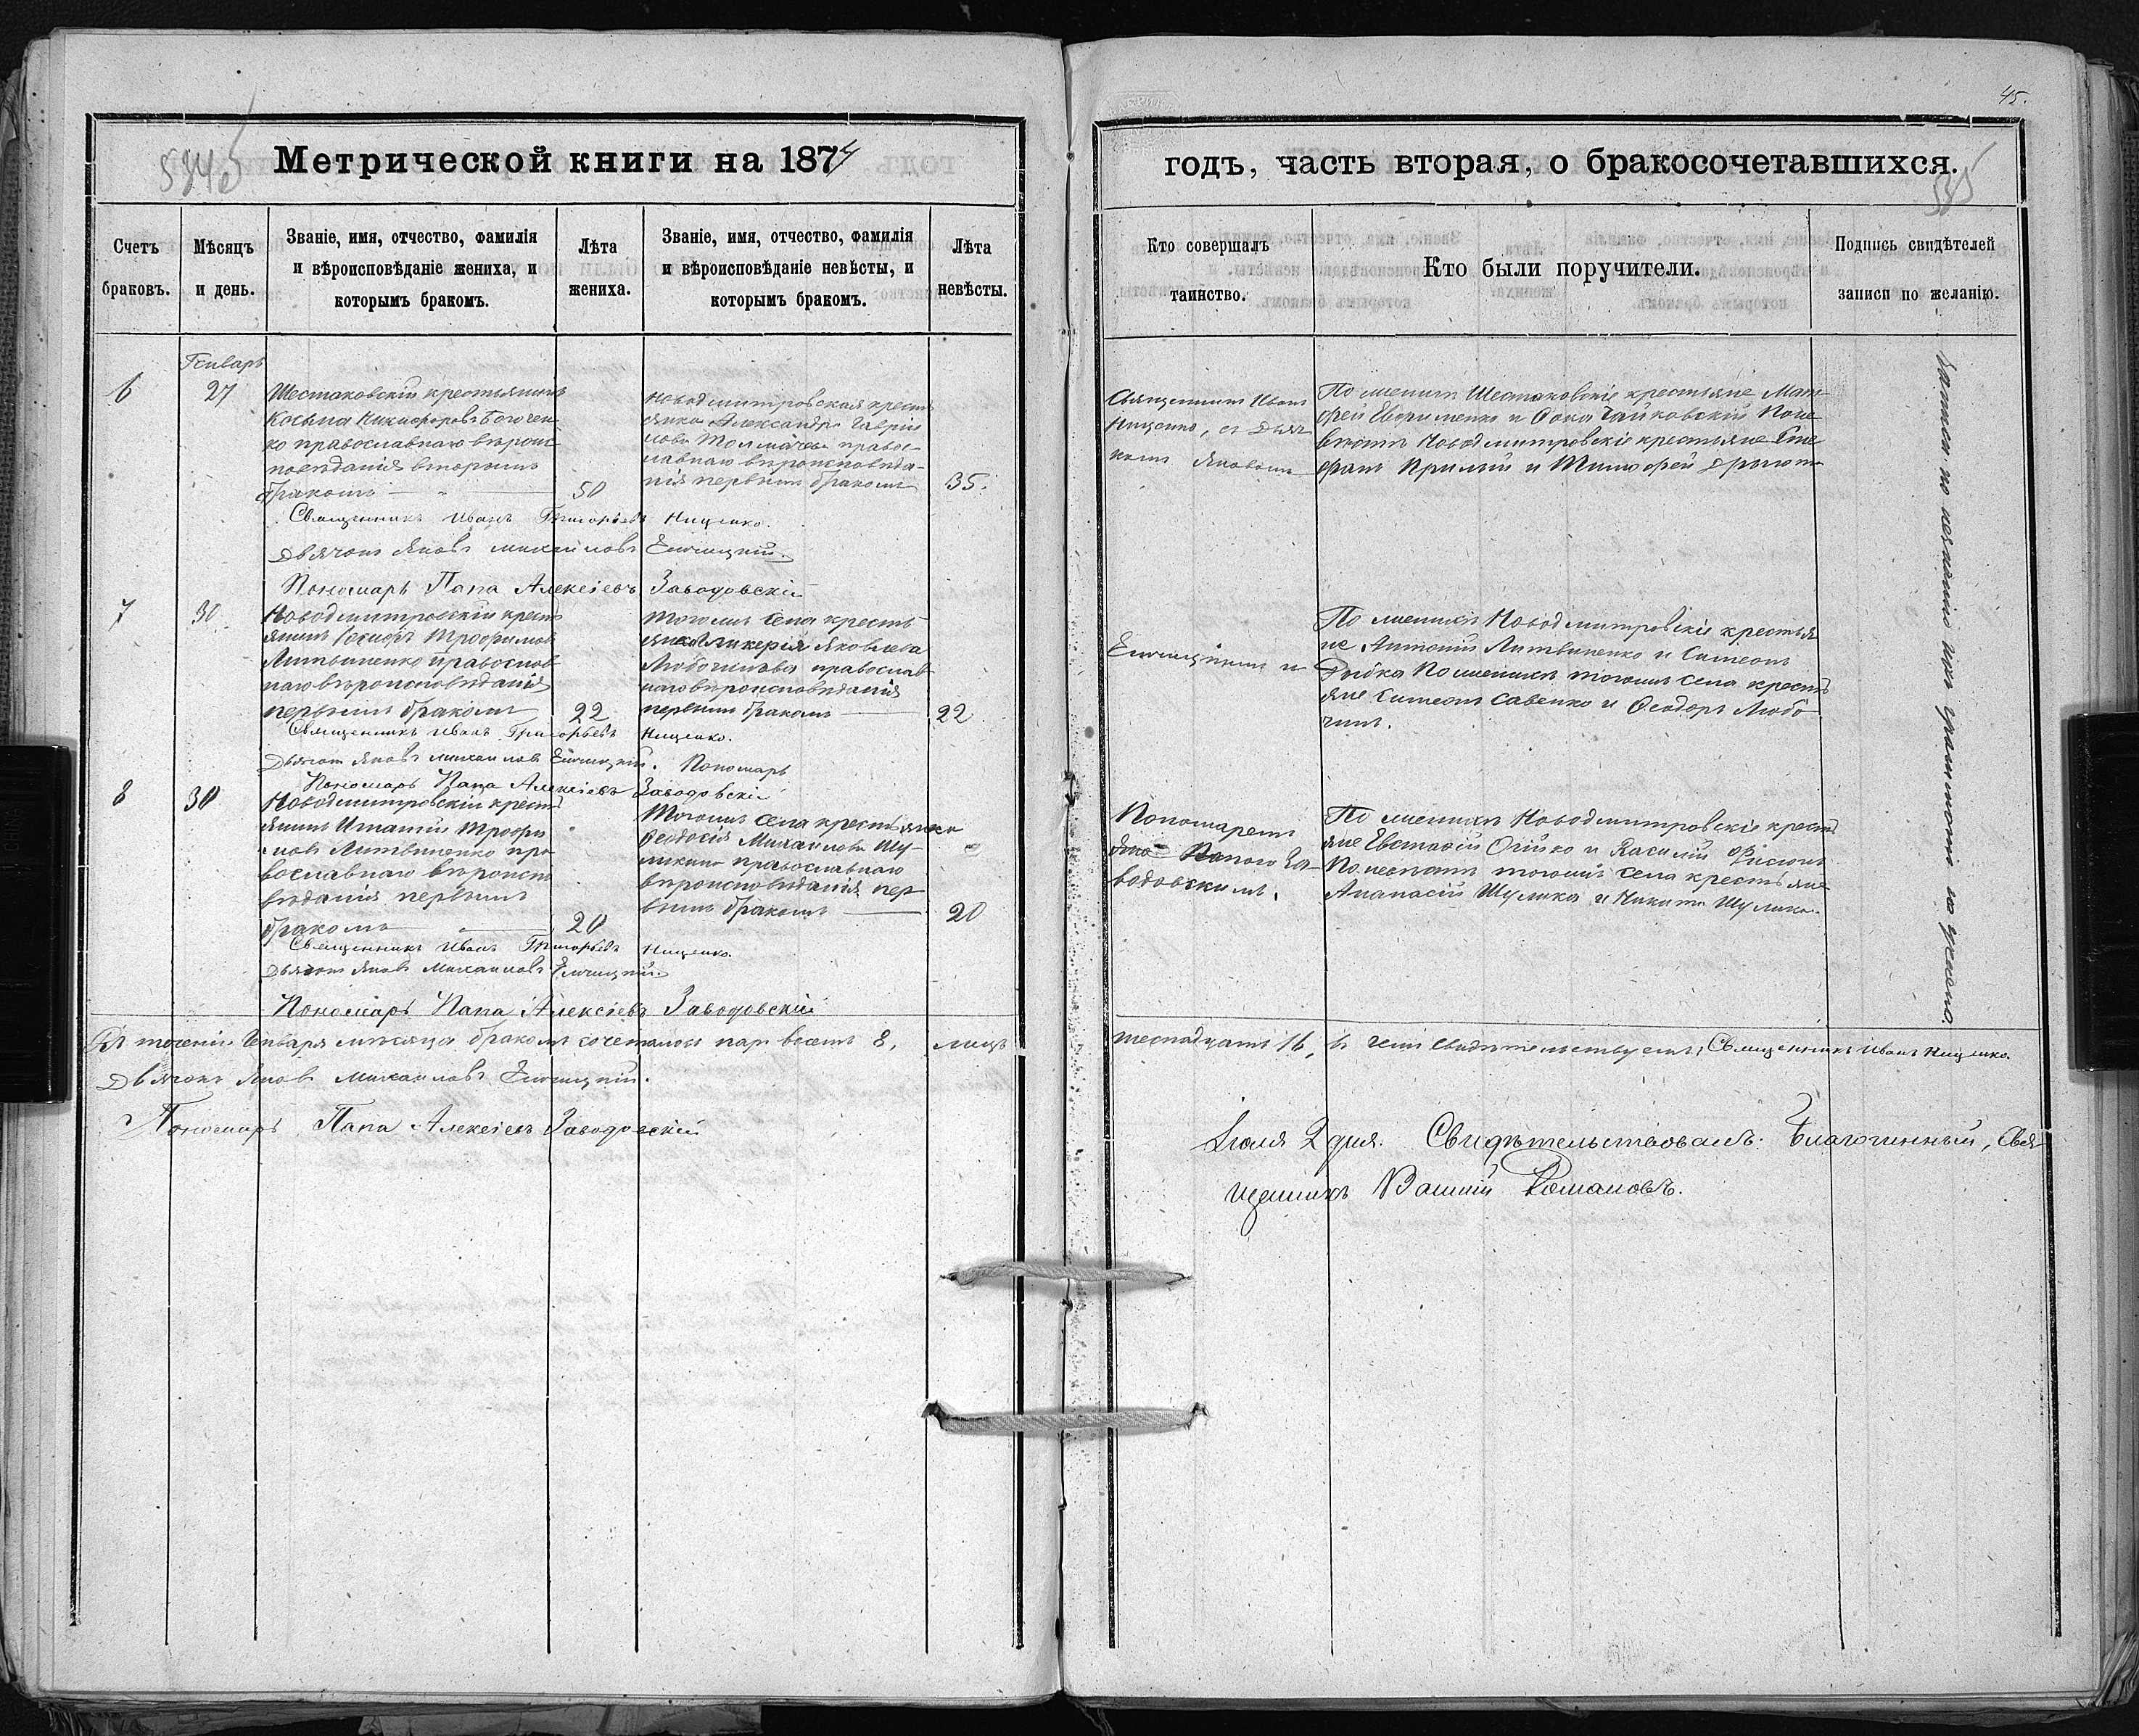 45.
Метрической книги на 1874
годъ, часть вторая, о бракосочетавшихся.
Счетъ браковъ.
Мѣсяцъ и день.
Званіе, имя, отчество, фамилія
и вѣроисповѣданіе жениха, и
которымъ бракомъ.
Лѣта жениха.
Званіе, имя, отчество, фамилія
и вѣроисповѣданіе невѣсты, и
которымъ бракомъ.
Лѣта невѣсты.
Кто совершалъ таинство.
Кто были поручители.
Подпись свидѣтелей записи по желанію.
Генварь
6
27
Шестаковскій крестьянинъ
Косьма Никифоровъ
ко православнаго вѣроис
повѣданія вторымъ
бракомъ
50
Новодмитровская кресть
янка Александра Гаври
лова православ
славнаго вѣроисповѣда-
нія первымъ бракомъ
35.
Священникъ Іванъ
Нищенко, съ дьяч
комъ Яковомъ
По женихѣ Шестаковскіе крестьяне Мат
фей и Фока Чайковскій Поне
вѣстѣ Новодмитровскіе крестьяне Сте
фанъ и Тимофей
Священникъ Иванъ Григорьевъ Нищенко.
Дьячокъ Яковъ Михаиловъ
Пономарь Папа Алексіевъ Заводовскій
7
30
Новодмитровскій кресть
янинъ Трофимовъ
Литвиненко православ
наго вѣроисповѣданія
первымъ бракомъ
22
Тогожъ села кресть
янка Гликерія Яковлева
православ
наго вѣроисповѣданія
первымъ бракомъ
22
По женихѣ Новодмитровскіе крестья
не Антоній Литвиненко и Симеонъ
Рыбка По невѣстѣ тогожъ села кресть
яне Симеонъ Савенко и Феодоръ Любо
чинъ.
Священникъ Иванъ Григорьевъ Нищенко.
Дьячокъ Яковъ Михаиловъ Пономарь
Пономарь Папа Алексіевъ Заводовскій
8
30
Новодмитровскій кресть
янинъ Игнатій Трофи
мовъ Литвиненко пра
вославнаго вѣроиспо
вѣданія первымъ
бракомъ
20
Тогожъ села крестьянка
Феодосія Михаилова Шу-
ликина православнаго
вѣроисповѣданія пер
вымъ бракомъ
20
Пономаремъ
Папою За-
водовскимъ.
По женихѣ Новодмитровскіе кресть
яне Евстафій Огійко и Василій
По невѣстѣ тогожъ села крестьяне
Афанасій Шулика и Никита Шулика.
Священникъ Иванъ Григорьевъ Нищенко.
Дьячокъ Яковъ Михаиловъ
Пономарь Папа Алексіевъ Заводовскій
Записи по незнанію ихъ грамоты не учинено.
Въ теченіи Генваря мѣсяца бракомъ сочеталось паръ всего 8, лицъ
шестнадцать 16, въ чемъ свидѣтельствуемъ, Священникъ Иванъ Нищенко.
Дьячокъ Яковъ Михаиловъ
Пономарь Папа Алексіевъ Заводовскій
Іюля 2 дня. Свидѣтельствовалъ: Благочинный, Свя
щенникъ Романовъ.